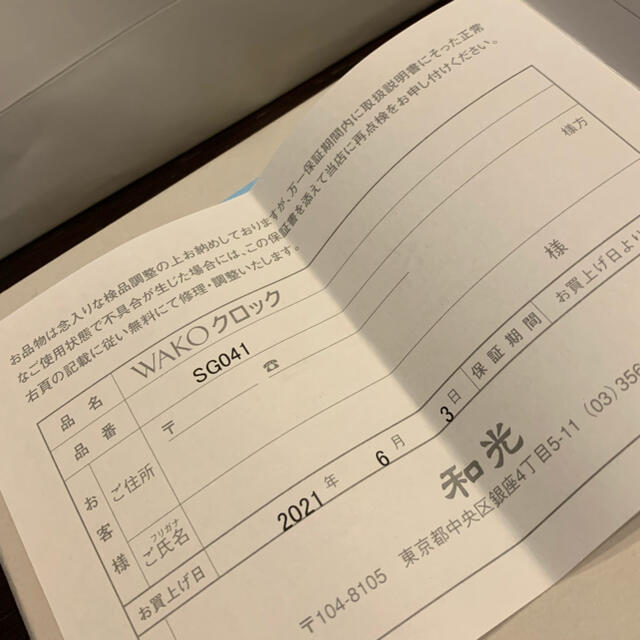 お品物は念入りな検品調整の上お納めしておりますが、万一保証期間内に取扱説明書にそった正常
なご使用状態で不具合が生じた場合には、この保証書を添えて当店に再点検をお申し付けください。
右頁の記載に従い無料にて修理・調整いたします。
品名 WAKO クロック
品番 SG041
お客様 ご住所 〒 ☎ 様方
フリガナ
ご氏名 様
お買上げ日 2021年 6月 3日 保証期間 お買上げ日より
和光
〒104-8105 東京都中央区銀座4丁目5-11 (03) 356